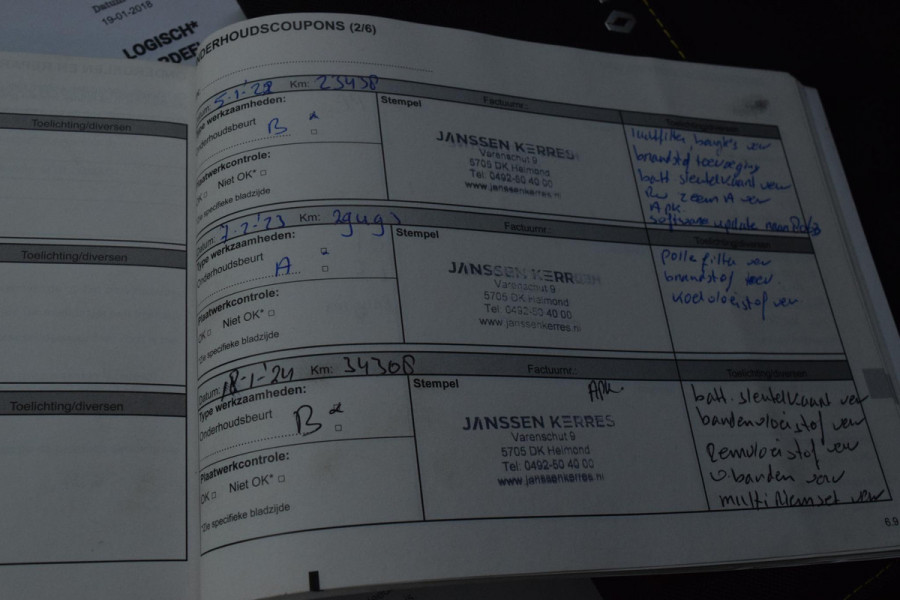 19-01-2018
LOGISCH*
NDERHOUDSCOUPONS (2/6)
Toelichting/diversen
Toelichting/diversen
Toelichting/diversen
Datum: 5-1-'22 Km: 23438
Factuurnr.:
Type werkzaamheden:
Onderhoudsbeurt B
Plaatwerkcontrole:
OK □ Niet OK* □
*De specifieke bladzijde
Stempel
JANSSEN KERRES
Varenschut 9
5705 DK Helmond
Tel: 0492-50 40 00
www.janssenkerres.nl
brandstof toevoeging
batt sleutelkaart ver
APK
software update
Datum: 2-2-'23 Km:
Factuurnr.:
Toelichting/diversen
Type werkzaamheden:
Onderhoudsbeurt A
Plaatwerkcontrole:
OK □ Niet OK* □
*De specifieke bladzijde
Stempel
JANSSEN KERRES
Varenschut 9
5705 DK Helmond
Tel: 0492-50 40 00
www.janssenkerres.nl
pollefilter ver
brandstof toev.
koelvloeistof ver
Datum: 18-1-'24 Km: 34308
Factuurnr.:
Toelichting/diversen
Type werkzaamheden:
Onderhoudsbeurt B
Plaatwerkcontrole:
OK □ Niet OK* □
*De specifieke bladzijde
Stempel
APK.
JANSSEN KERRES
Varenschut 9
5705 DK Helmond
Tel: 0492-50 40 00
www.janssenkerres.nl
batt. sleutelkaart ver
bandenvloeistof ver
remvloeistof ver
banden
multiriemset ver
6.9